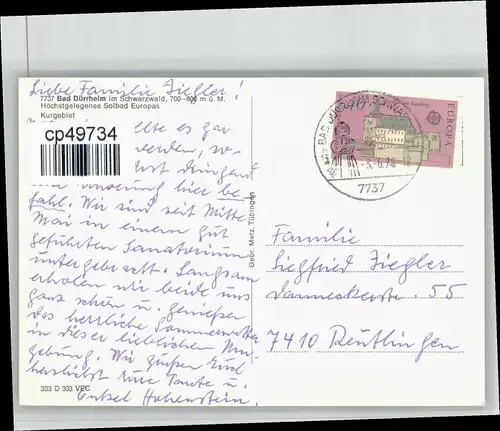 Liebe Familie Ziegler!
7737 Bad Dürrheim im Schwarzwald, 700–800 m ü. M.
Höchstgelegenes Solbad Europas
Kurgebiet
cp49734
es gar
werden,
dringend
hier be
fahl. Wir sind seit Mitte
Mai in einem gut
geführten Sanatorium
untergebracht. Langsam
erholen wir beide uns
ganz schön u. genießen
das herrliche Sommerwetter
in dieser lieblichen Um
gebung. Wir grüßen Euch
herzlichst Eure Tante u.
Onkel Hohenstein.
333 D 303 VEC
Gebr. Metz, Tübingen
BAD
7737
EUROPA
Familie
Siegfried Ziegler
55
7410 Reutlingen